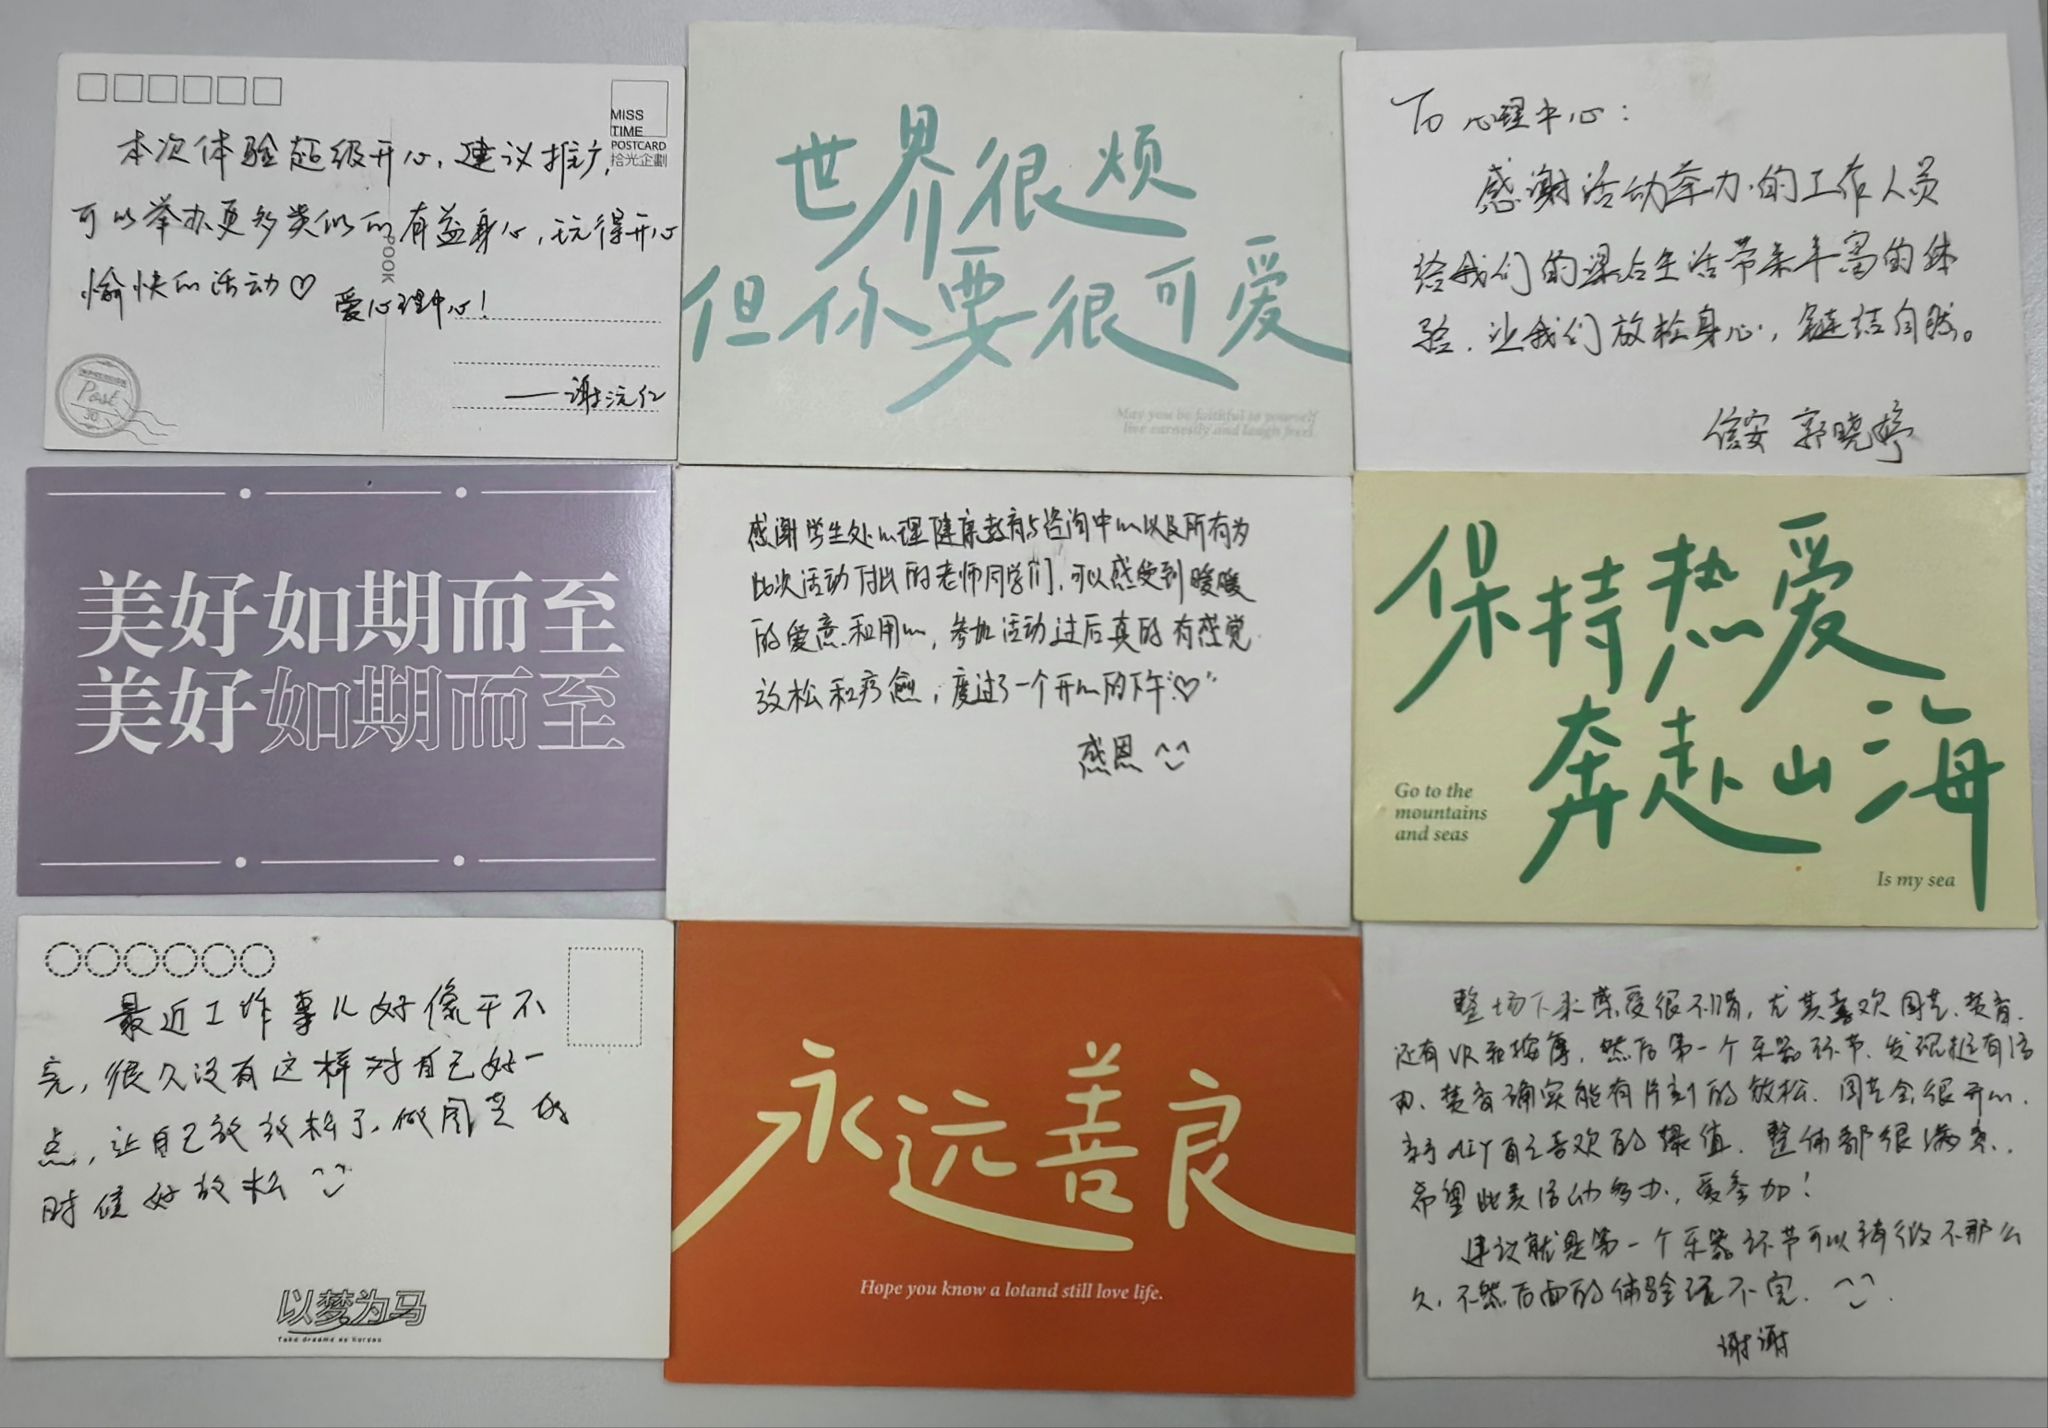 MISS
TIME
POSTCARD
拾光企劃
本次体验超级开心，建议推广，
可以举办更多类似的有益身心，玩得开心
愉快的活动♡
爱心理中心！
POOK
Post
30
——谢沅仁
世界很烦
但你要很可爱
May you be faithful to yourself
live earnestly and laugh feel
To 心理中心：
感谢活动举办的工作人员
给我们的课后生活带来丰富的体
验，让我们放松身心，链结自然。
信安 郭晓婷
美好如期而至
美好如期而至
感谢学生处心理健康教育与咨询中心以及所有为
此次活动付出的老师同学们，可以感受到暖暖
的爱意和用心，参加活动过后真的有感觉
放松和疗愈，度过了一个开心的下午“♡”
感恩 ^^
保持热爱
奔赴山海
Go to the
mountains
and seas
Is my sea
最近工作事儿好像干不
完，很久没有这样对自己好一
点，让自己放放松了，做园艺的
时候好放松
以梦为马
Take dreams as horses
永远善良
Hope you know a lotand still love life.
整场下来感受很不错，尤其喜欢园艺、焚香、
还有VR和按摩，然后第一个乐器环节，发现挺有活
力，焚香确实能有片刻的放松，园艺会很开心，
亲手diy自己喜欢的绿植，整体都很满意，
希望此类活动多办，爱参加！
建议就是第一个乐器环节可以稍微不那么
久，不然后面的体验玩不完。
谢谢